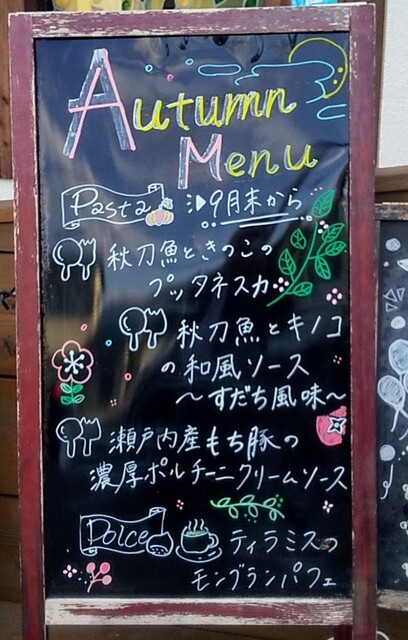 Autumn
Menu
Pasta 9月末から
秋刀魚ときのこの
プッタネスカ
秋刀魚とキノコ
の和風ソース
〜すだち風味〜
瀬戸内産もち豚の
濃厚ポルチーニクリームソース
Dolce ティラミスの
モンブランパフェ